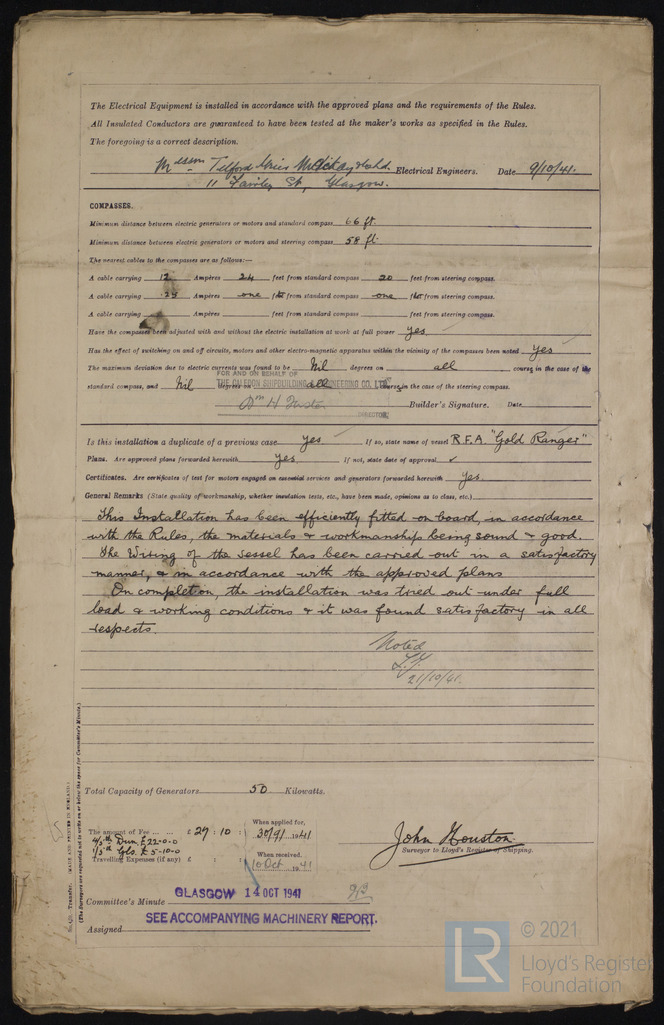 The Electrical Equipment is installed in accordance with the approved plans and the requirements of the Rules.
All Insulated Conductors are guaranteed to have been tested at the maker's works as specified in the Rules.
The foregoing is a correct description.
Messrs Telford Grier Mackay & Co Ld. Electrical Engineers. Date 9/10/41.
11 St, Glasgow.
COMPASSES.
Minimum distance between electric generators or motors and standard compass 66 ft.
Minimum distance between electric generators or motors and steering compass 58 ft
The nearest cables to the compasses are as follows:—
A cable carrying 12 Ampères 24 feet from standard compass 20 feet from steering compass.
A cable carrying .25 Ampères one feet from standard compass one feet from steering compass.
A cable carrying Ampères feet from standard compass feet from steering compass.
Have the compasses been adjusted with and without the electric installation at work at full power yes
Has the effect of switching on and off circuits, motors and other electro-magnetic apparatus within the vicinity of the compasses been noted yes
The maximum deviation due to electric currents was found to be Nil degrees on all course in the case of the
FOR AND ON BEHALF OF
standard compass, and Nil degrees on all course in the case of the steering compass.
THE CALEDON SHIPBUILDING & ENGINEERING CO. LTD.
Builder's Signature. Date
DIRECTOR
Is this installation a duplicate of a previous case yes If so, state name of vessel R.F.A. "Gold Ranger"
Plans. Are approved plans forwarded herewith yes. If not, state date of approval ✓
Certificates. Are certificates of test for motors engaged on essential services and generators forwarded herewith yes.
General Remarks (State quality of workmanship, whether insulation tests, etc., have been made, opinions as to class, etc.)
This Installation has been efficiently fitted on board, in accordance
with the Rules, the materials & workmanship being sound & good.
The Wiring of the vessel has been carried out in a satisfactory
manner, & in accordance with the approved plans
On completion, the installation was tried out under full
load & working conditions & it was found satisfactory in all
respects.
Noted
21/10/41.
Total Capacity of Generators 50 Kilowatts.
The amount of Fee ... ... £ 27 : 10 :
When applied for, 30/9/1941
4/5th Dun. £22-0-0
1/5th Gls. £5-10-0
Travelling Expenses (if any) £ : :
When received, 10 Oct 1941
John Houston
Surveyor to Lloyd's Register of Shipping.
Committee's Minute GLASGOW 14 OCT 1941
SEE ACCOMPANYING MACHINERY REPORT.
Assigned
Transfer. (MADE AND PRINTED IN ENGLAND.)
(The Surveyors are requested not to write on or below the space for Committee's Minute.)
LR
© 2021
Lloyd's Register
Foundation